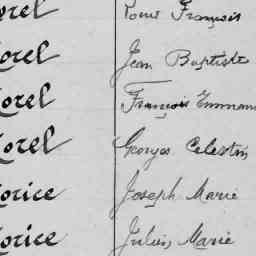 orel Louis François
orel Jean Baptiste
orel François Emmanu
orel Georges Celestin
orice Joseph Marie
orice Julien Marie